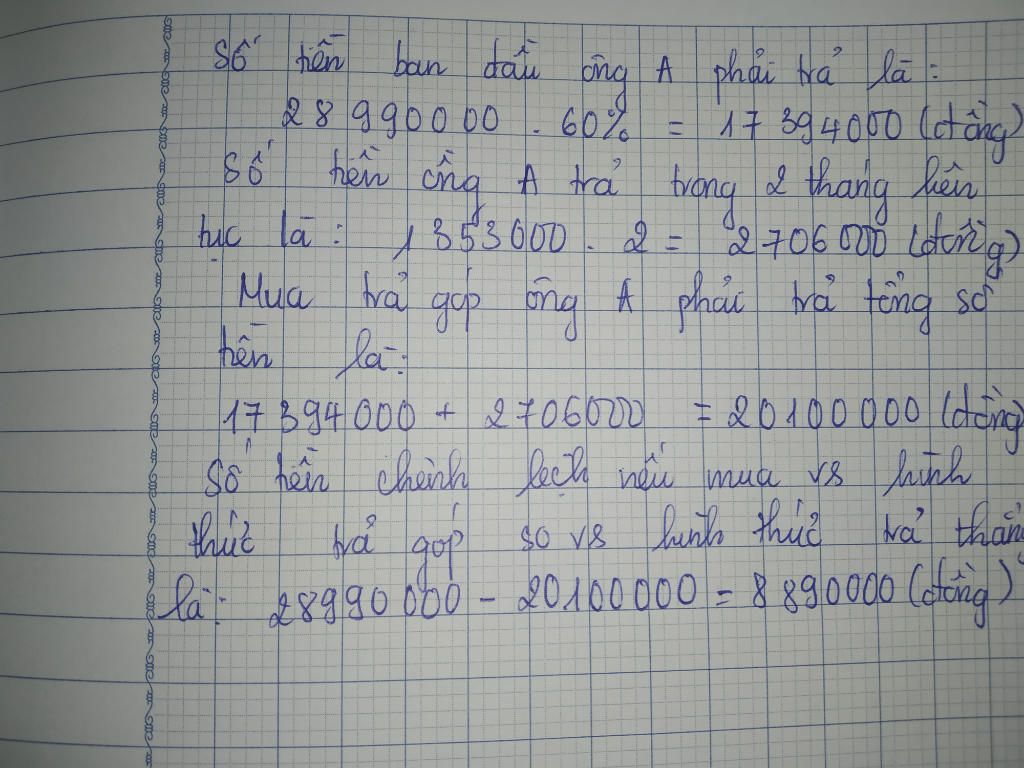 Số tiền ban đầu ông A phải trả là:
28 990000 . 60% = 17 394000 (đồng)
Số tiền ông A trả trong 2 tháng liên
tục là: 1 353000 . 2 = 2 706 000 (đồng)
Mua trả góp ông A phải trả tổng số
tiền là:
17 394000 + 2706000 = 20100000 (đồng)
Số tiền chênh lệch nếu mua vs hình
thức trả góp so vs hình thức trả thẳng
là: 28990000 - 20100000 = 8 890000 (đồng)